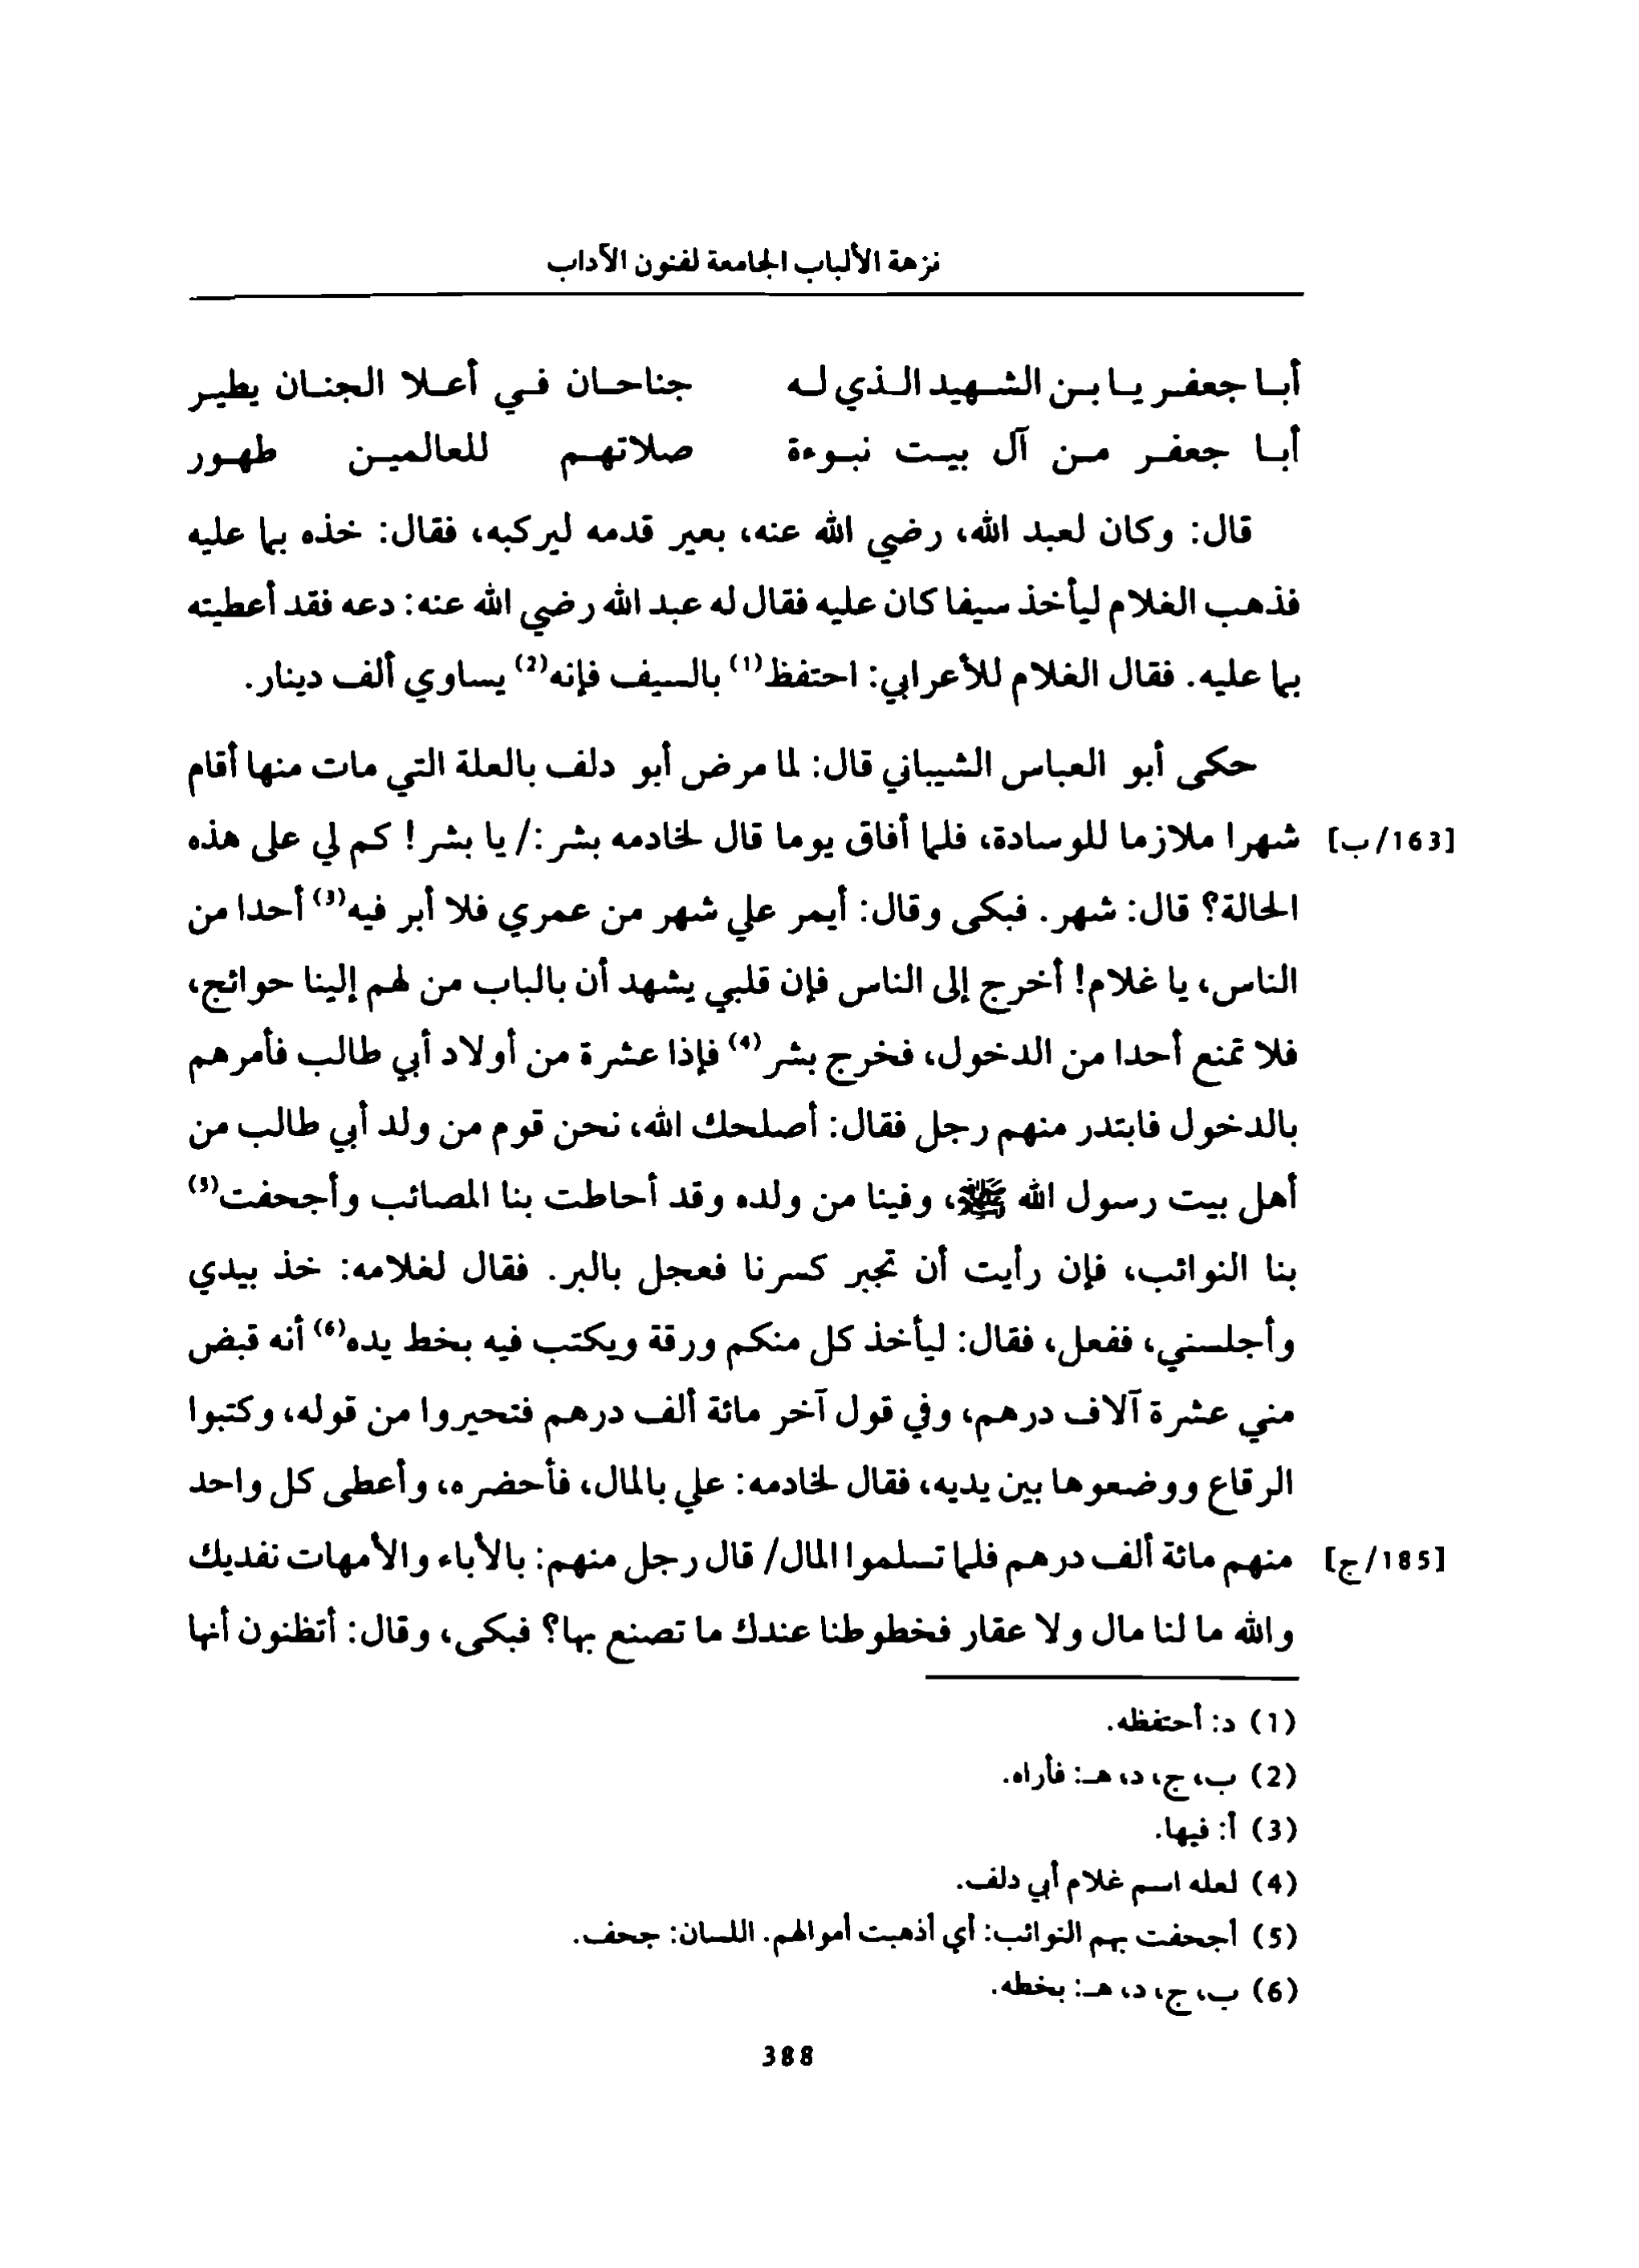 نزهة الألباب الجامعة لفنون الآداب
أبا جعفر يا بن الشهيد الذي له جناحان في أعلا الجنان يطير
أبا جعفر من آل بيت نبوءة صلاتهم للعالمين طهور
قال: وكان لعبد الله، رضي الله عنه، بعير قدمه ليركبه، فقال: خذه بما عليه
فذهب الغلام ليأخذ سيفا كان عليه فقال له عبد الله رضي الله عنه: دعه فقد أعطيته
بما عليه. فقال الغلام للأعرابي: احتفظ(1) بالسيف فإنه(2) يساوي ألف دينار.
حكى أبو العباس الشيباني قال: لما مرض أبو دلف بالعلة التي مات منها أقام
[163/ب] شهرا ملازما للوسادة، فلما أفاق يوما قال لخادمه بشر:/ يا بشر! كم لي على هذه
الحالة؟ قال: شهر. فبكى وقال: أيمر علي شهر من عمري فلا أبر فيه(3) أحدا من
الناس، يا غلام! أخرج إلى الناس فإن قلبي يشهد أن بالباب من لهم إلينا حوائج،
فلا تمنع أحدا من الدخول، فخرج بشر(4) فإذا عشرة من أولاد أبي طالب فأمرهم
بالدخول فابتدر منهم رجل فقال: أصلحك الله، نحن قوم من ولد أبي طالب من
أهل بيت رسول الله ﷺ، وفينا من ولده وقد أحاطت بنا المصائب وأجحفت(5)
بنا النوائب، فإن رأيت أن تجبر كسرنا فعجل بالبر. فقال لغلامه: خذ بيدي
وأجلسني، ففعل، فقال: ليأخذ كل منكم ورقة ويكتب فيه بخط يده(6) أنه قبض
مني عشرة آلاف درهم، وفي قول آخر مائة ألف درهم فتحيروا من قوله، وكتبوا
الرقاع ووضعوها بين يديه، فقال لخادمه: علي بالمال، فأحضره، وأعطى كل واحد
[185/ج] منهم مائة ألف درهم فلما تسلموا المال/ قال رجل منهم: بالأباء والأمهات نفديك
والله ما لنا مال ولا عقار فخطوطنا عندك ما تصنع بها؟ فبكى، وقال: أتظنون أنها
(1) د: أحتفظه.
(2) ب، ج، د، هـ: فأراه.
(3) أ: فيها.
(4) لعله اسم غلام أبي دلف.
(5) أجحفت بهم النوائب: أي أذهبت أموالهم. اللسان: جحف.
(6) ب، ج، د، هـ: بخطه.
388